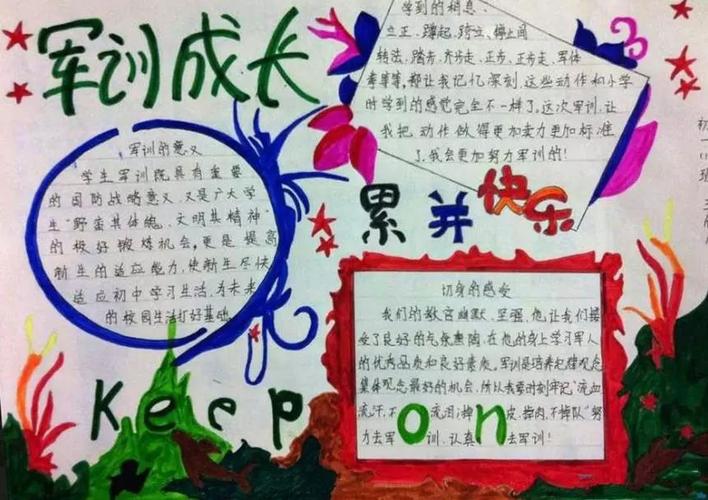 军训成长
学到的稍息、
立正、蹲起、跨立、停止间
转法、踏步、齐步走、正步、正步走、军体
拳等等,都让我记忆深刻,这些动作和小学
时学到的感觉完全不一样了,这次军训,让
我把动作做得更加卖力更加标准
了,我会更加努力军训的!
军训的意义
学生军训既具有重要
的国防战略意义,又是广大学
生“野蛮其体魄,文明其精神”
的极好锻炼机会,更是提高
新生的适应能力,使新生尽快
适应初中学习生活,为未来
的校园生活打好基础
累并快乐
切身的感受
我们的教官幽默、坚强、他让我们接
受了良好的气氛熏陶,在他的身上学习军人
的优秀品质和良好素质,军训是培养纪律观念
集体观念最好的机会,所以我要时刻牢记“流血
流汗,不流泪;掉皮,掉肉,不掉队”努
力去军训,认真去军训!
Keep on
初
一
班